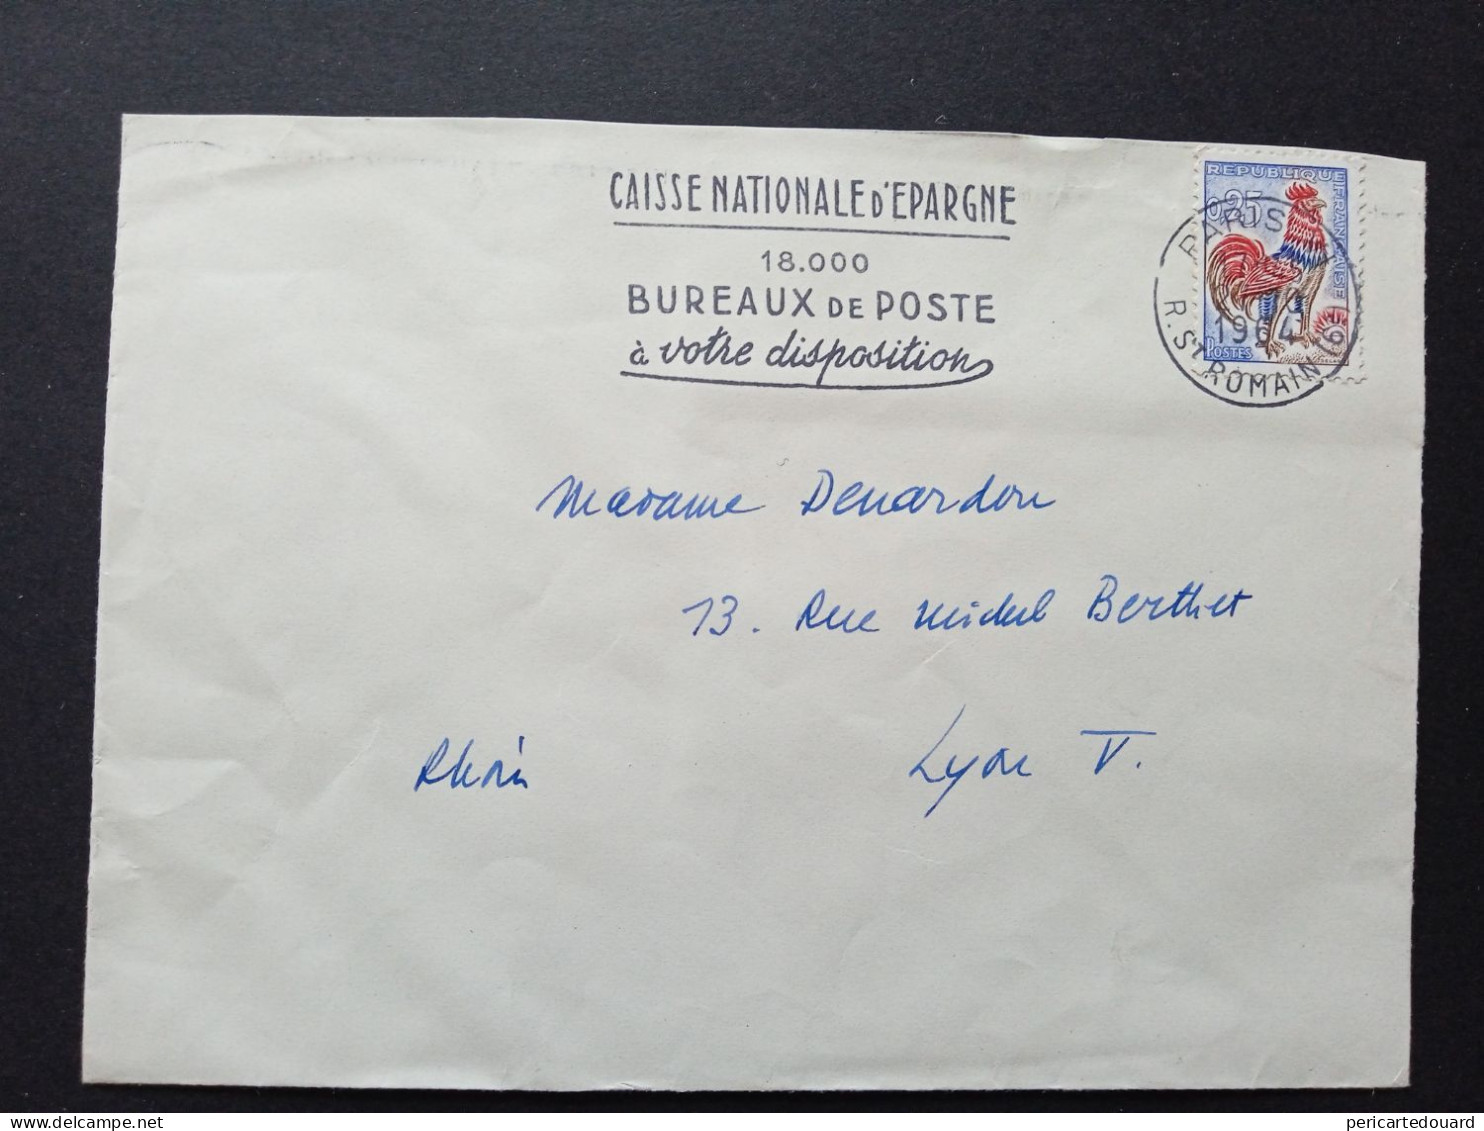 CAISSE NATIONALE D'EPARGNE
18.000
BUREAUX DE POSTE
à votre disposition
REPUBLIQUE FRANÇAISE
0,25
POSTES
PARIS
1964
R. ST ROMAIN (6)
Madame Denardon
13. Rue Michel Berthet
Rhôn
Lyon V.
delcampe.net
pericartedouard